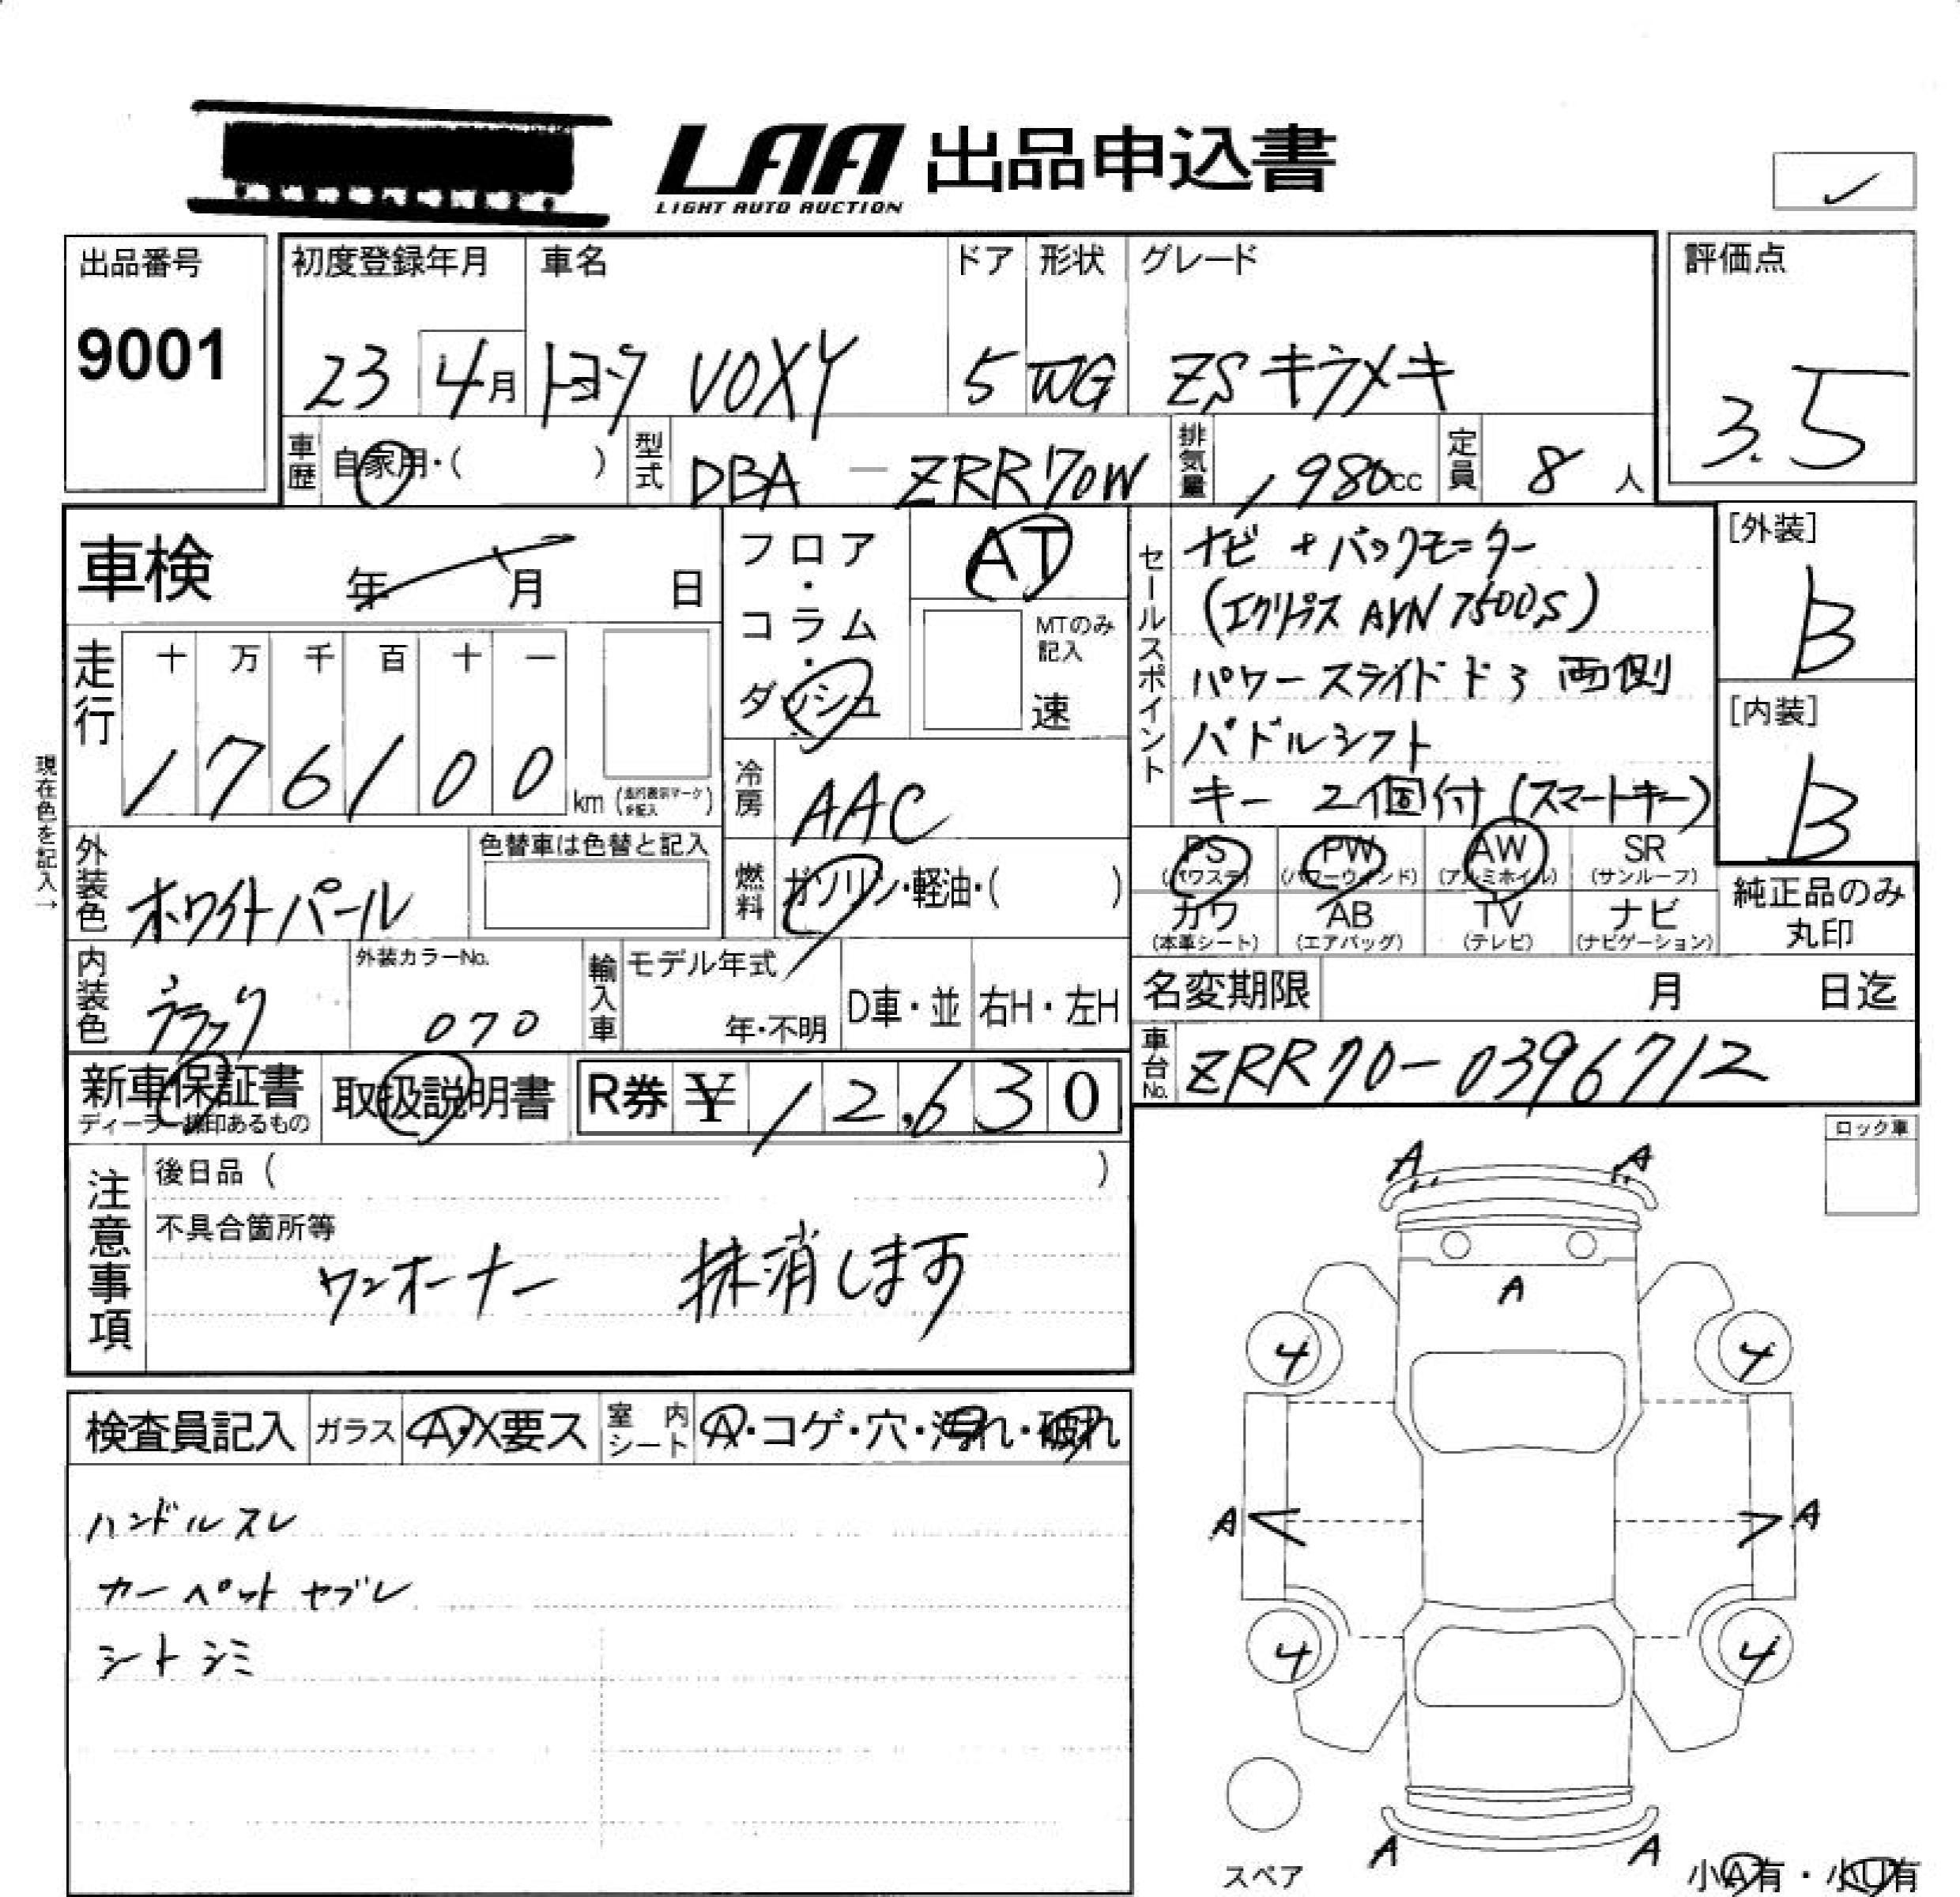 LAA 出品申込書
LIGHT AUTO AUCTION
✓
出品番号
9001
初度登録年月
23 4月
車名
トヨタ VOXY
ドア
5
形状
WG
グレード
ZSキラメキ
評価点
3.5
車歴 自家用・( )
型式 DBA - ZRR70W
排気量 1,980cc
定員 8人
車検 年 月 日
フロア・コラム・ダッシュ
AT
MTのみ記入
速
セールスポイント
ナビ + バックモニター
(エクリプス AVN 7500S)
パワースライドドア 両側
パドルシフト
キー 2個付(スマートキー)
[外装]
B
[内装]
B
走行
十 万 千 百 十 一
1 7 6 1 0 0 km
冷房 AAC
現在色を記入→
外装色 ホワイトパール
色替車は色替と記入
燃料 ガソリン・軽油・( )
PS (パワステ) PW (パワーウィンド) AW (アルミホイル) SR (サンルーフ)
カワ (本革シート) AB (エアバッグ) TV (テレビ) ナビ (ナビゲーション)
純正品のみ
丸印
内装色 ブラック
外装カラーNo.
070
輸入車 モデル年式
年・不明
D車・並 右H・左H
名変期限 月 日迄
車台No. ZRR70-0396712
新車保証書
取扱説明書
R券 ¥ 12,630
ロック車
注意事項
後日品 ( )
不具合箇所等
ワンオーナー 抹消します
検査員記入 ガラス A・X要ス 室内シート A・コゲ・穴・汚れ・破れ
ハンドルスレ
カーペットヤブレ
シートシミ
A A
A
4 4
A A
4 4
A A
スペア
小A有・小U有